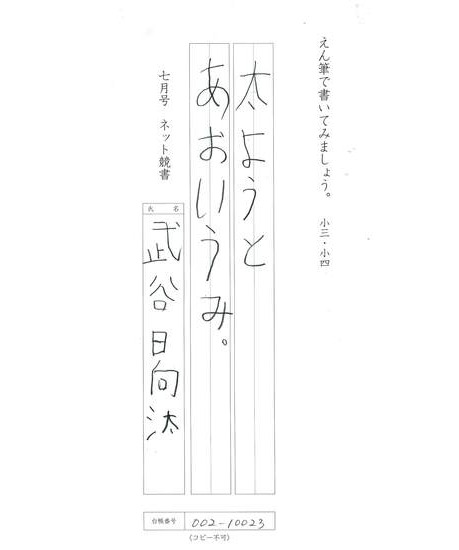 えん筆で書いてみましょう。　小三・小四
太ようと
あおいうみ。
七月号　ネット競書
氏名
武谷日向汰
台帳番号 002-10023
(コピー不可)